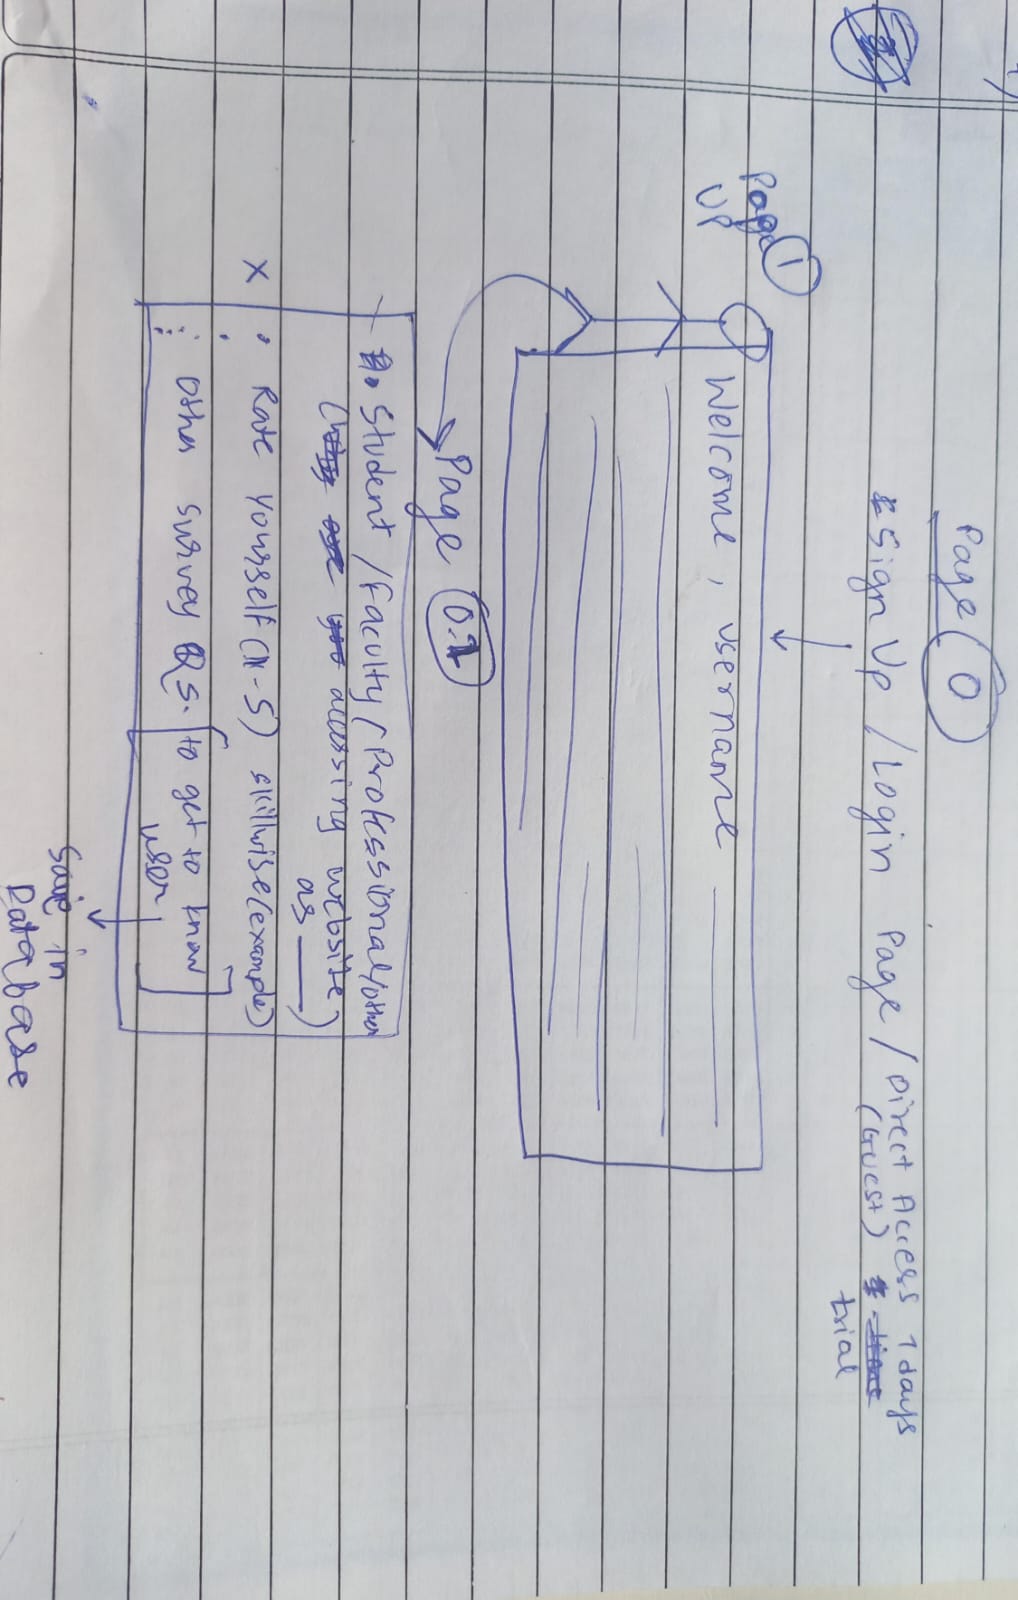 Page 0
Sign Up / Login Page / Direct Access 1 days
(Guest) trial
Page 1
UP
Welcome, username
Page 0.1
Student / Faculty / Professional / other
( accessing website
as ___ )
x Rate yourself (1-5) skillwise (example)
other survey Qs. [to get to know
user]
Save in
Database